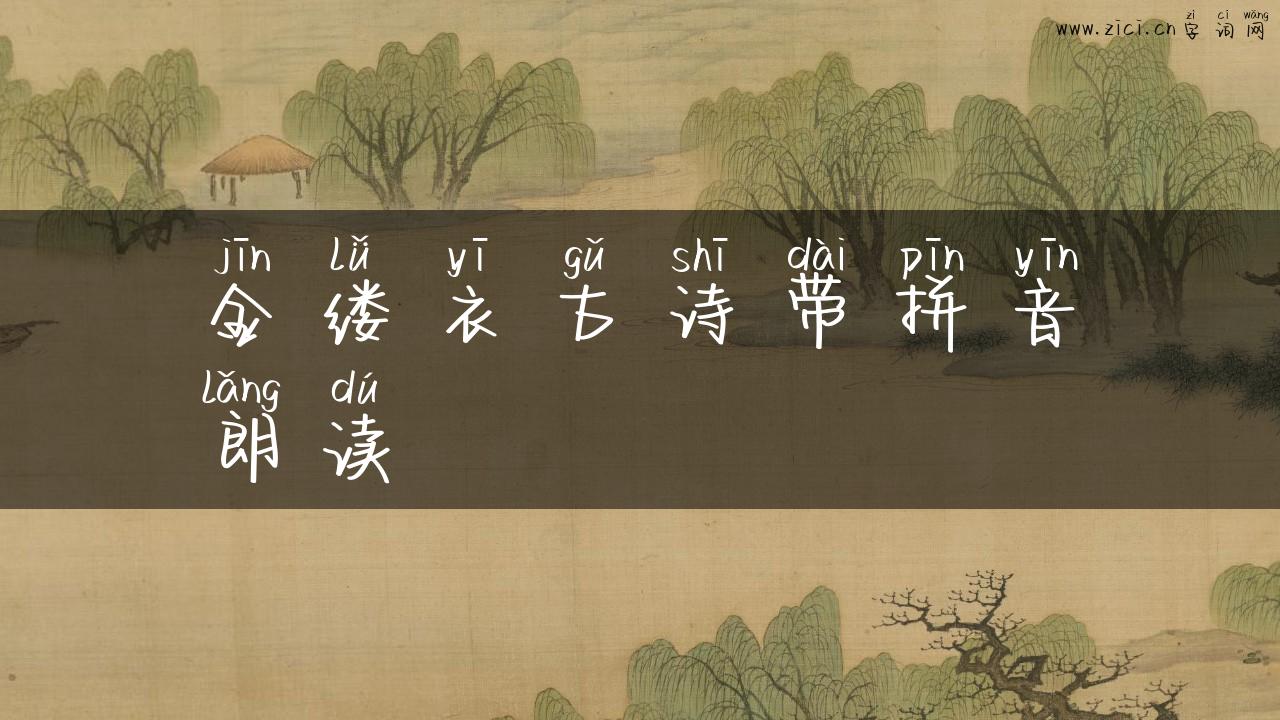 zì cí wǎng
www.zici.cn 字词网
jīn lǚ yī gǔ shī dài pīn yīn
金缕衣古诗带拼音
lǎng dú
朗读